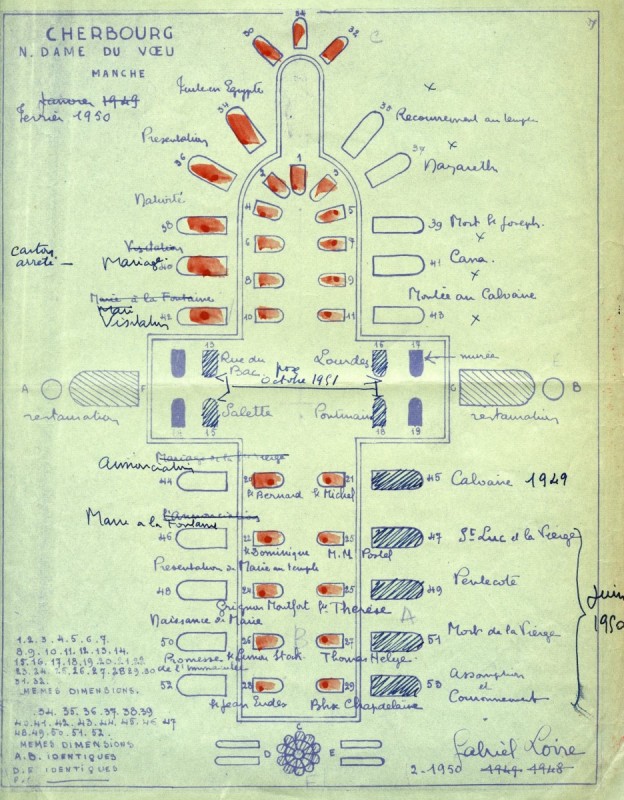 CHERBOURG
N. DAME DU VŒU
MANCHE
Janvier 1949
Fevrier 1950
30
32
C
Fuite en Egypte
34
35
Recouvrement au temple
x
Presentation
36
37
Nazareth
x
1
2
3
Nativité
38
4
5
39
Mort St Joseph.
carton arrêté —
Visitation
Mariage
40
6
7
41
Cana.
x
Marie à la Fontaine
8
9
Montée au Calvaire
x
Visitation
42
10
11
43
x
13
Rue du Bac
Lourdes
16
17
murée
pose
Octobre 1951
A
F
G
B
restauration
Salette
Pontmain
restauration
15
18
19
Mariage de la Vierge
Annonciation
44
20
21
45
Calvaire 1949
St Bernard
St Michel
l'Annonciation
Marie à la Fontaine
46
25
47
St Luc et la Vierge
St Dominique
M.M Postel
Presentation de Marie au temple
48
24
25
49
Pentecôte
Grignon Montfort
Ste Thérèse
A
Juin 1950
Naissance de Marie
50
26
27
51
Mort de la Vierge
B
Promesse de l'Immaculée
St Simon Stock
Thomas Helye
52
28
29
53
Assomption et Couronnement
St Jean Eudes
Bhse Chapdelaine
1.2.3.4.5.6.7.
8.9.10.11.12.13.14.
15.16.17.18.19.20.21.22
23.24.25.26.27.28.29.30
31.32.
MEMES DIMENSIONS.
34.35.36.37.38.39
40.41.42.43.44.45.46.47
48.49.50.51.52.
MEMES DIMENSIONS
A.B. IDENTIQUES
D.E IDENTIQUES
C
D
E
Gabriel Loire
2-1950 1949 1948